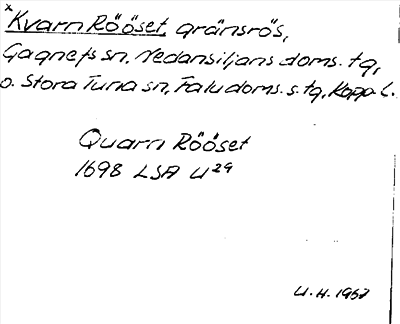 x
Kvarn Rööset, gränsrös,
Gagnefs sn, Nedansiljans doms. tg,
o. Stora Tuna sn, Falu doms. s. tg, Kopp. L.
Quarn Rööset
1698 LSA U29
U. H. 1967